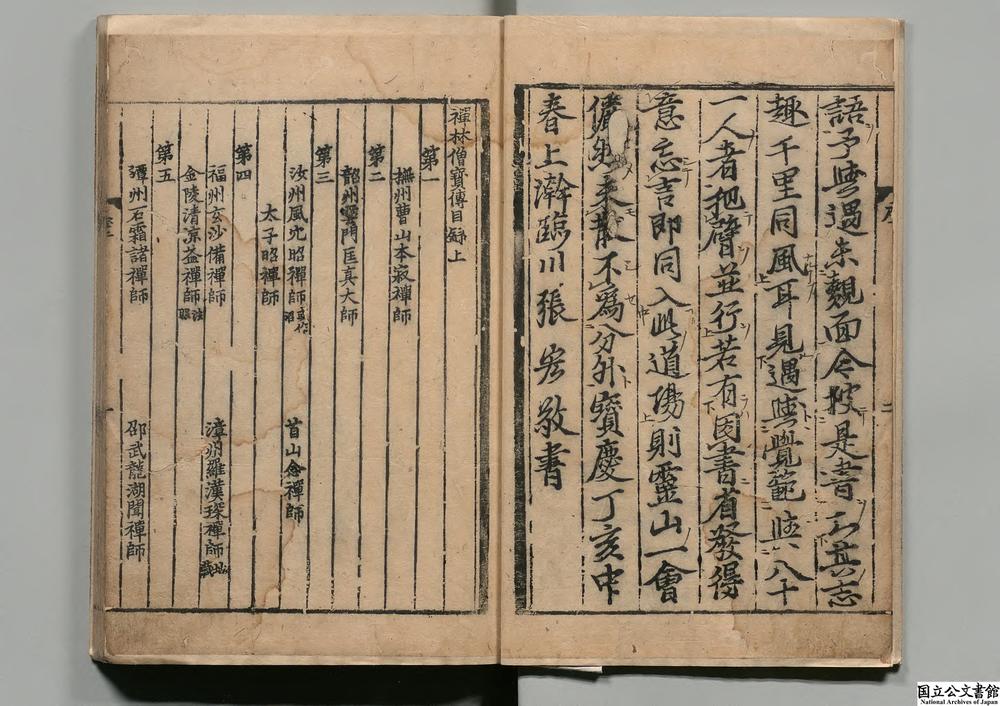 語予與遇未覿面今披是書知其志
趣千里同風耳見遇與覺範與八十
一人者把臂並行若有因書省發得
意忘言即同入此道場則靈山一會
儼然未散不為分外寶慶丁亥中
春上澣臨川張宏敬書
禪林僧寶傳目錄上
第一
撫州曹山本寂禪師
第二
韶州雲門匡真大師
第三
汝州風穴昭禪師
首山念禪師
太子昭禪師
第四
福州玄沙備禪師
漳州羅漢琛禪師
金陵清涼益禪師 法眼
第五
潭州石霜諸禪師
邵武龍湖聞禪師
国立公文書館
National Archives of Japan